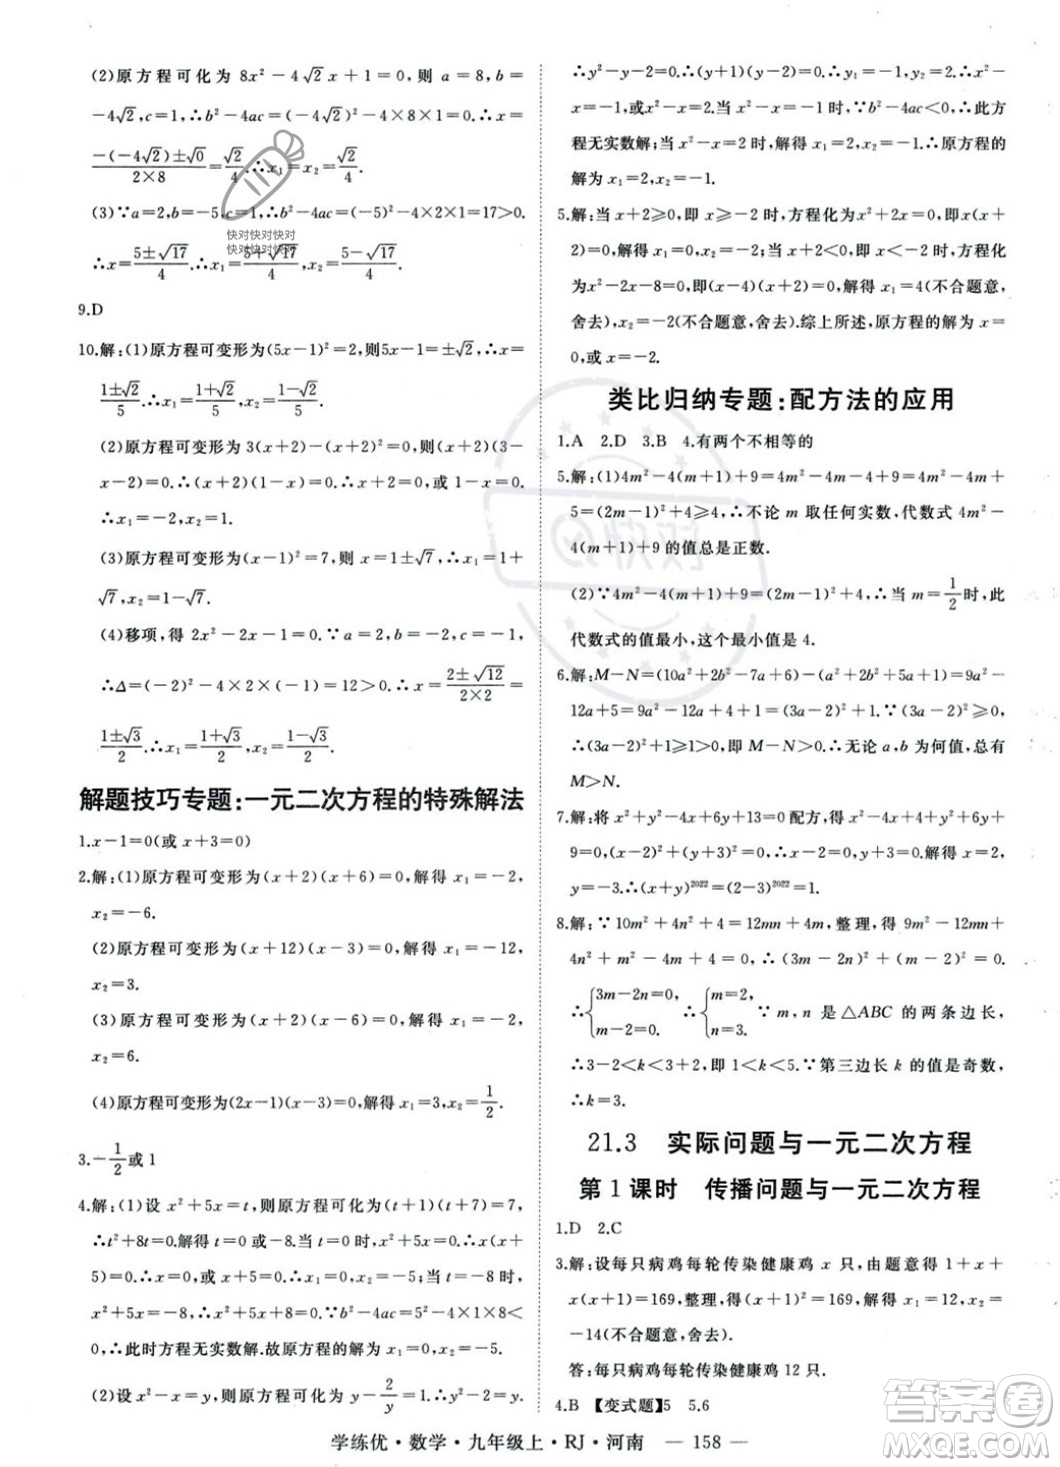 (2)原方程可化为 8x²-4√2x+1=0,则 a=8,b=
-4√2,c=1,∴b²-4ac=(-4√2)²-4×8×1=0,∴x=
-(-4√2)±√0/2×8=√2/4.∴x₁=x₂=√2/4.
(3)∵a=2,b=-5,c=1,∴b²-4ac=(-5)²-4×2×1=17>0.
∴x=5±√17/4.∴x₁=5+√17/4,x₂=5-√17/4.
9.D
10.解:(1)原方程可变形为(5x-1)²=2,则5x-1=±√2,∴x=
1±√2/5.∴x₁=1+√2/5,x₂=1-√2/5.
(2)原方程可变形为 3(x+2)-(x+2)²=0,则(x+2)(3-
x-2)=0.∴(x+2)(1-x)=0.∴x+2=0,或 1-x=0.
∴x₁=-2,x₂=1.
(3)原方程可变形为(x-1)²=7,则 x=1±√7,∴x₁=1+
√7,x₂=1-√7.
(4)移项,得 2x²-2x-1=0.∵a=2,b=-2,c=-1,
∴Δ=(-2)²-4×2×(-1)=12>0,∴x=2±√12/2×2=
1±√3/2.∴x₁=1+√3/2,x₂=1-√3/2.
解题技巧专题:一元二次方程的特殊解法
1.x-1=0(或 x+3=0)
2.解:(1)原方程可变形为(x+2)(x+6)=0,解得 x₁=-2,
x₂=-6.
(2)原方程可变形为(x+12)(x-3)=0,解得 x₁=-12,
x₂=3.
(3)原方程可变形为(x+2)(x-6)=0,解得 x₁=-2,
x₂=6.
(4)原方程可变形为(2x-1)(x-3)=0,解得 x₁=3,x₂=1/2.
3.-1/2或 1
4.解:(1)设 x²+5x=t,则原方程可化为(t+1)(t+7)=7,
∴t²+8t=0.∴t(t+8)=0.∴t=0 或 t=-8.当 t=0 时,x²+
5x=0,∴x(x+5)=0.∴x₁=0,x₂=-5;当 t=-8 时,
x²+5x=-8,∴x²+5x+8=0.∵b²-4ac=5²-4×1×8<
0,∴此时方程无实数解.故原方程的解为 x₁=0,x₂=-5.
(2)设 x²-x=y,则原方程可化为 y-2/y=1.方程两边乘 y,得 y²-2=y.
∴y²-y-2=0,∴(y-2)(y+1)=0.∴y₁=-1,y₂=
2.当 x²-x=-1 时,x²-x+1=0.∵b²-4ac<0,∴此方
程无实数解;当 x²-x=2 时,解得 x=2 或-1.∴原方程的
解为 x₁=2,x₂=-1.
5.解:当 x+2≥0,即 x≥-2 时,方程化为 x²+2x=0,即x(x+
2)=0.解得 x₁=0,x₂=-2;当 x+2<0,即 x<-2 时,方程化
为x²-2x-8=0,即(x-4)(x+2)=0.解得 x₁=4(不合题意,
舍去),x₂=-2(不合题意,舍去).综上所述,原方程的解为 x=
0,或 x=-2.
类比归纳专题:配方法的应用
1.A 2.D 3.B 4.有两个不相等的
5.解:(1)4m²-4(m+1)+9=4m²-4m-4+9=4m²-4m+
5=(2m-1)²+4≥4,∴不论 m 取任何实数,代数式 4m²-
4(m+1)+9 的值总是正数.
(2)∵4m²-4(m+1)+9=(2m-1)²+4,∴当 m=1/2时,此
代数式的值最小,这个最小值是 4.
6.解:M-N=(10a²+2b²-7a+6)-(a²+2b²+5a+1)=9a²-
12a+5=9a²-12a+4+1=(3a-2)²+1.∵(3a-2)²≥
0,∴(3a-2)²+1>0,即 M-N>0.∴无论a,b 为何值,总有
M>N.
7.解:将 x²+y²-4x+6y+13=0 配方,得 x²-4x+4+y²+6y+
9=0,即(x-2)²+(y+3)²=0.∴x-2=0,y+3=0.∴x=2,
y=-3.∴(x+y)²⁰²²=(2-3)²⁰²²=1.
8.解:∵10m²+4n²+4=12mn+4m,整理,得 9m²-12mn+
4n²+m²-4m+4=0,∴(3m-2n)²+(m-2)²=0.
∴{3m-2n=0, m-2=0. ∴{m=2, n=3. ∵m,n 是△ABC 的两条边长,
∴3-2<k<3+2,即 1<k<5.∵第三边长 k 的值是奇数,
∴k=3.
21.3 实际问题与一元二次方程
第 1 课时 传播问题与一元二次方程
1.D 2.C
3.解:设每只病鸡每轮传染健康鸡 x 只,由题意,得 1+x+
x(x+1)=169,整理,得(1+x)²=169,解得 x₁=12,x₂=
-14(不合题意,舍去).
答:每只病鸡每轮传染健康鸡 12 只.
4.B 【变式题】5 5.6
学练优·数学·九年级上·RJ·河南 — 158 —
快对快对快对
快对快对快对
答案圈